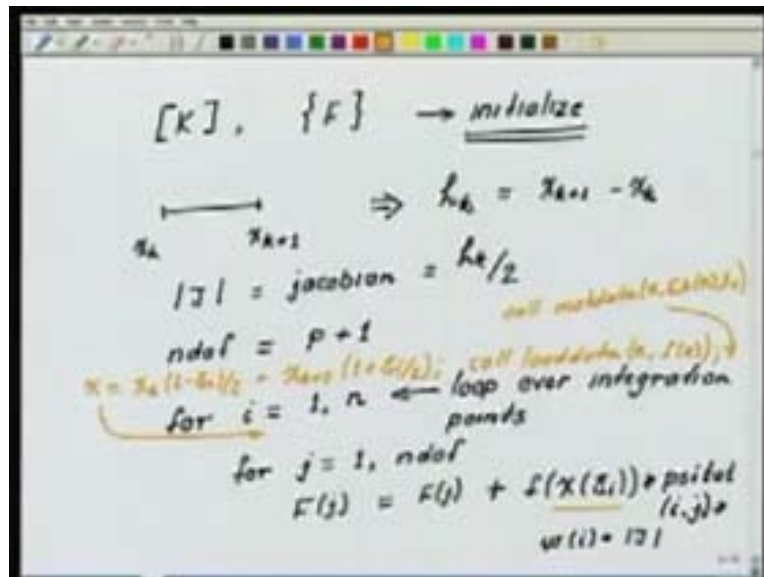 [K], {F} → initialize
x_k x_{k+1} ⇒ h_k = x_{k+1} - x_k
|J| = jacobian = h_k/2
call matdata(x,
ndof = p+1
x = x_k (1-ξ_i)/2 + x_{k+1} (1+ξ_i)/2; call loaddata(x, f(x));
for i = 1, n ← loop over integration points
for j = 1, ndof
F(j) = F(j) + f(x(ξ_i)) * psitot
(i,j) *
wt(i) * |J|